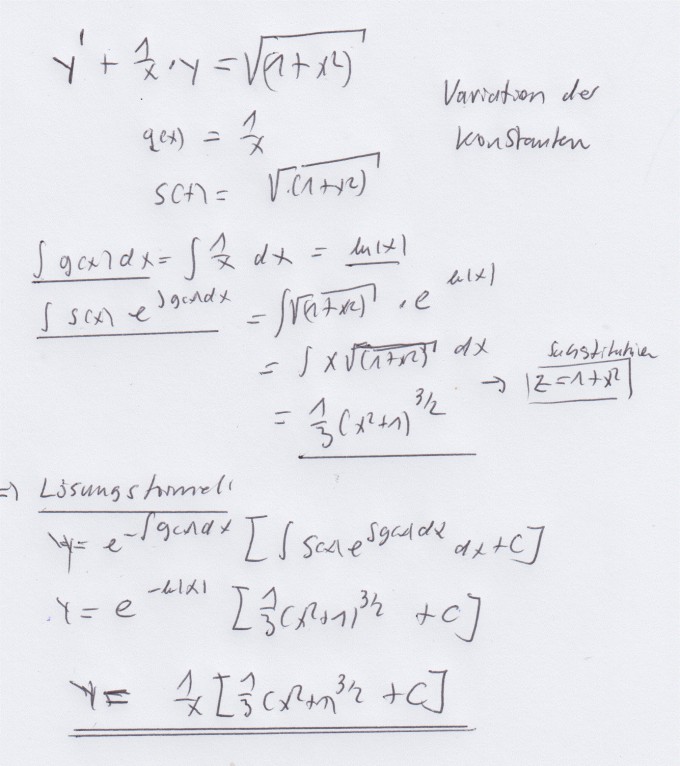 y' + 1/x · y = √(1+x²)
Variation der
Konstanten
g(x) = 1/x
s(x) = √(1+x²)
∫ g(x) dx = ∫ 1/x dx = ln|x|
∫ s(x) e^∫g(x)dx = ∫√(1+x²) · e^ln|x|
= ∫ x √(1+x²) dx
→ Substitution
z = 1+x²
= 1/3 (x²+1)^3/2
=> Lösungsformel:
y = e^-∫g(x)dx [∫ s(x) e^∫g(x)dx dx + C]
y = e^-ln|x| [1/3 (x²+1)^3/2 + C]
y = 1/x [1/3 (x²+1)^3/2 + C]